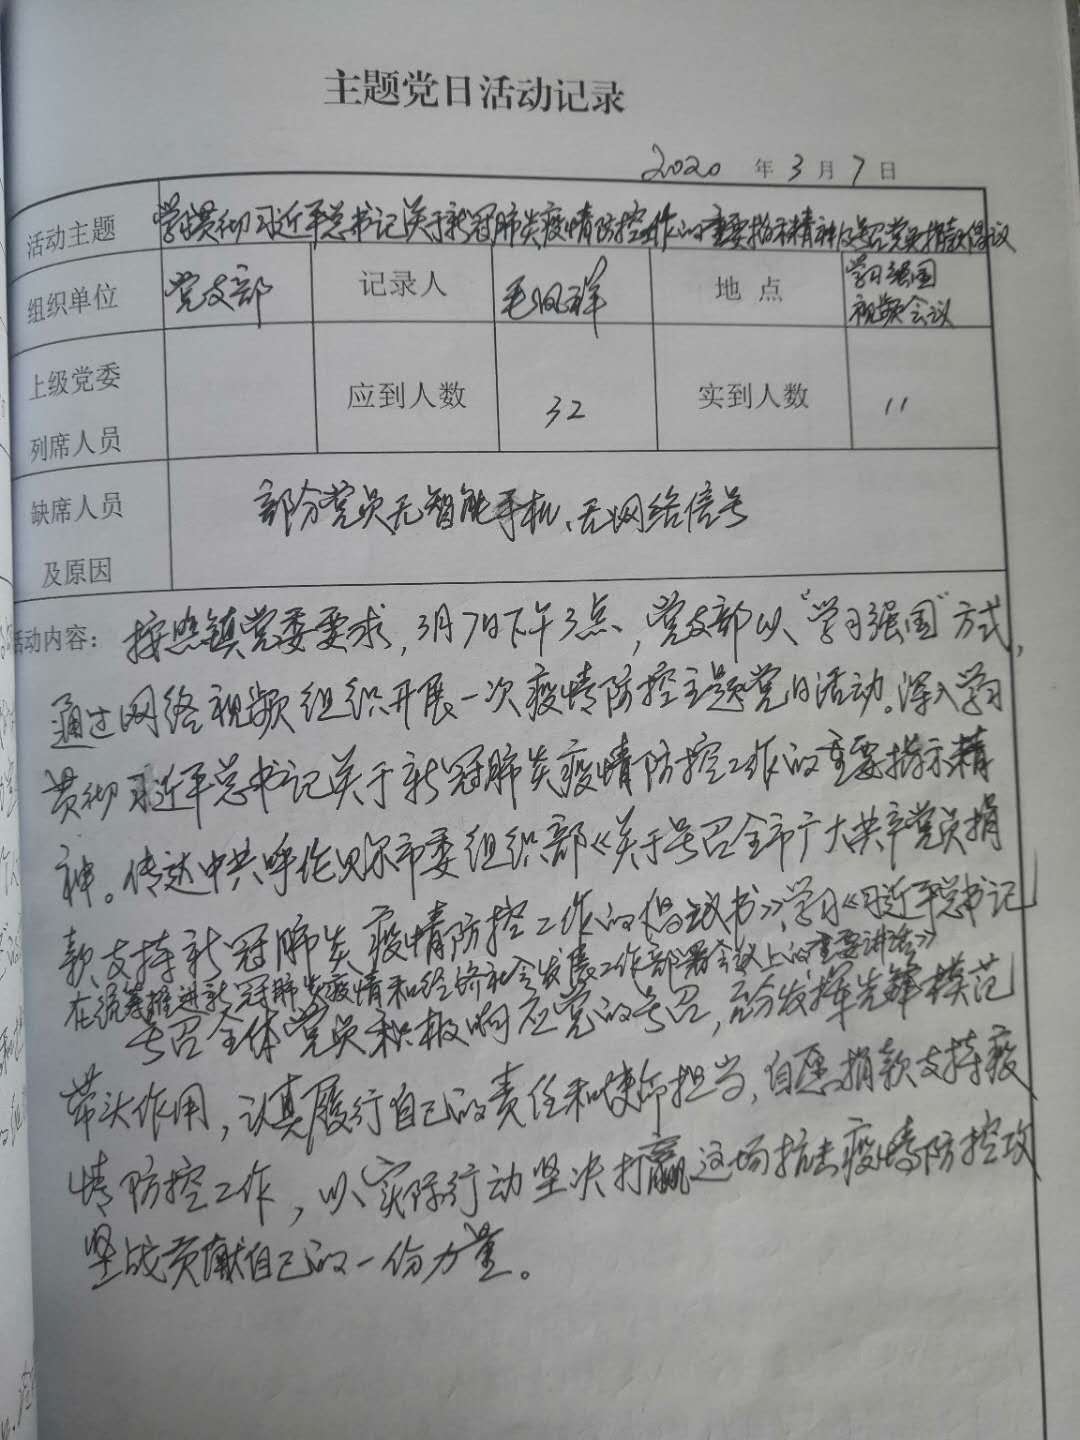 主题党日活动记录
2020 年 3 月 7 日
活动主题 学习贯彻习近平总书记关于新冠肺炎疫情防控工作的重要指示精神及号召党员捐款倡议
组织单位 党支部 记录人 毛 祥 地 点 学习强国
视频会议
上级党委
列席人员 应到人数 32 实到人数 11
缺席人员
及原因 部分党员无智能手机、无网络信号
活动内容：按照镇党委要求，3月7日下午3点，党支部以"学习强国"方式，
通过网络视频组织开展一次疫情防控主题党日活动。深入学习
贯彻习近平总书记关于新冠肺炎疫情防控工作的重要指示精
神。传达中共呼伦贝尔市委组织部《关于号召全市广大共产党员捐
款支持新冠肺炎疫情防控工作的倡议书》，学习《习近平总书记
在统筹推进新冠肺炎疫情和经济社会发展工作部署会议上的重要讲话》
号召全体党员积极响应党的号召，充分发挥先锋模范
带头作用，认真履行自己的责任和使命担当，自愿捐款支持疫
情防控工作，以实际行动坚决打赢这场抗击疫情防控攻
坚战贡献自己的一份力量。